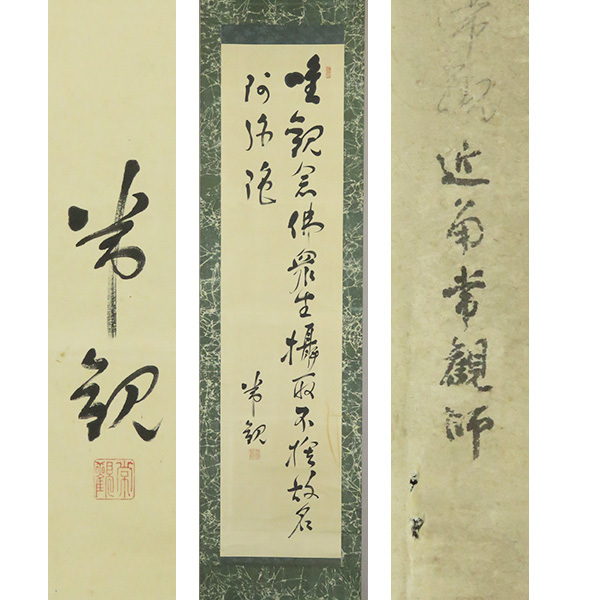 常観
常觀
唯観念佛衆生摂取不捨故名
阿弥陀
常観
常観
近角常観師